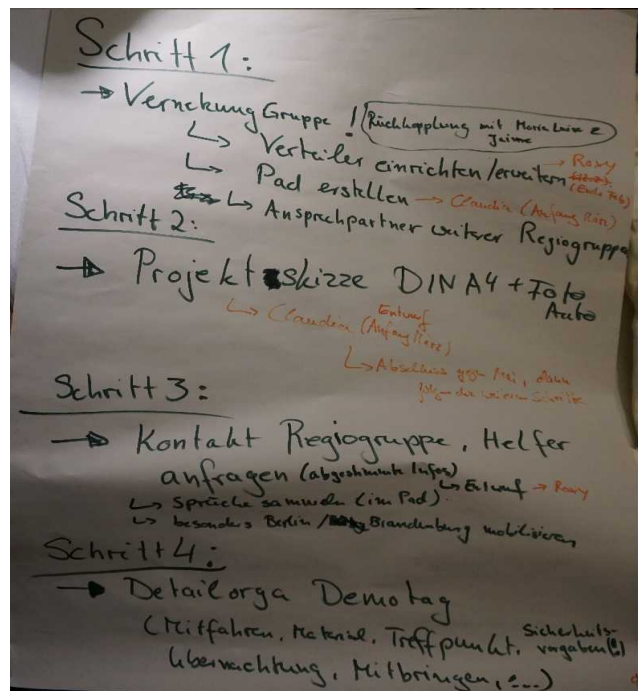 Schritt 1:
→ Vernetzung Gruppe ! Rückkopplung mit Maria Luise & Jaime
↳ Verteiler einrichten/erweitern → Roxy (Ende Feb)
↳ Pad erstellen → Claudia (Anfang März)
↳ Ansprechpartner weiterer Regiogruppe
Schritt 2:
→ Projektskizze DIN A4 + Foto Auto
↳ Claudia Entwurf (Anfang März)
↳ Abschluss gegen Mai, dann
folgen die weiteren Schritte
Schritt 3:
→ Kontakt Regiogruppe, Helfer
anfragen (abgestimmte Infos)
↳ Entwurf → Roxy
↳ Sprüche sammeln (im Pad)
↳ besonders Berlin / Brandenburg mobilisieren
Schritt 4:
→ Detailorga Demotag
(Mitfahren, Material, Treffpunkt, Sicherheits-
vorgaben(!)
Übernachtung, Mitbringen, ...)